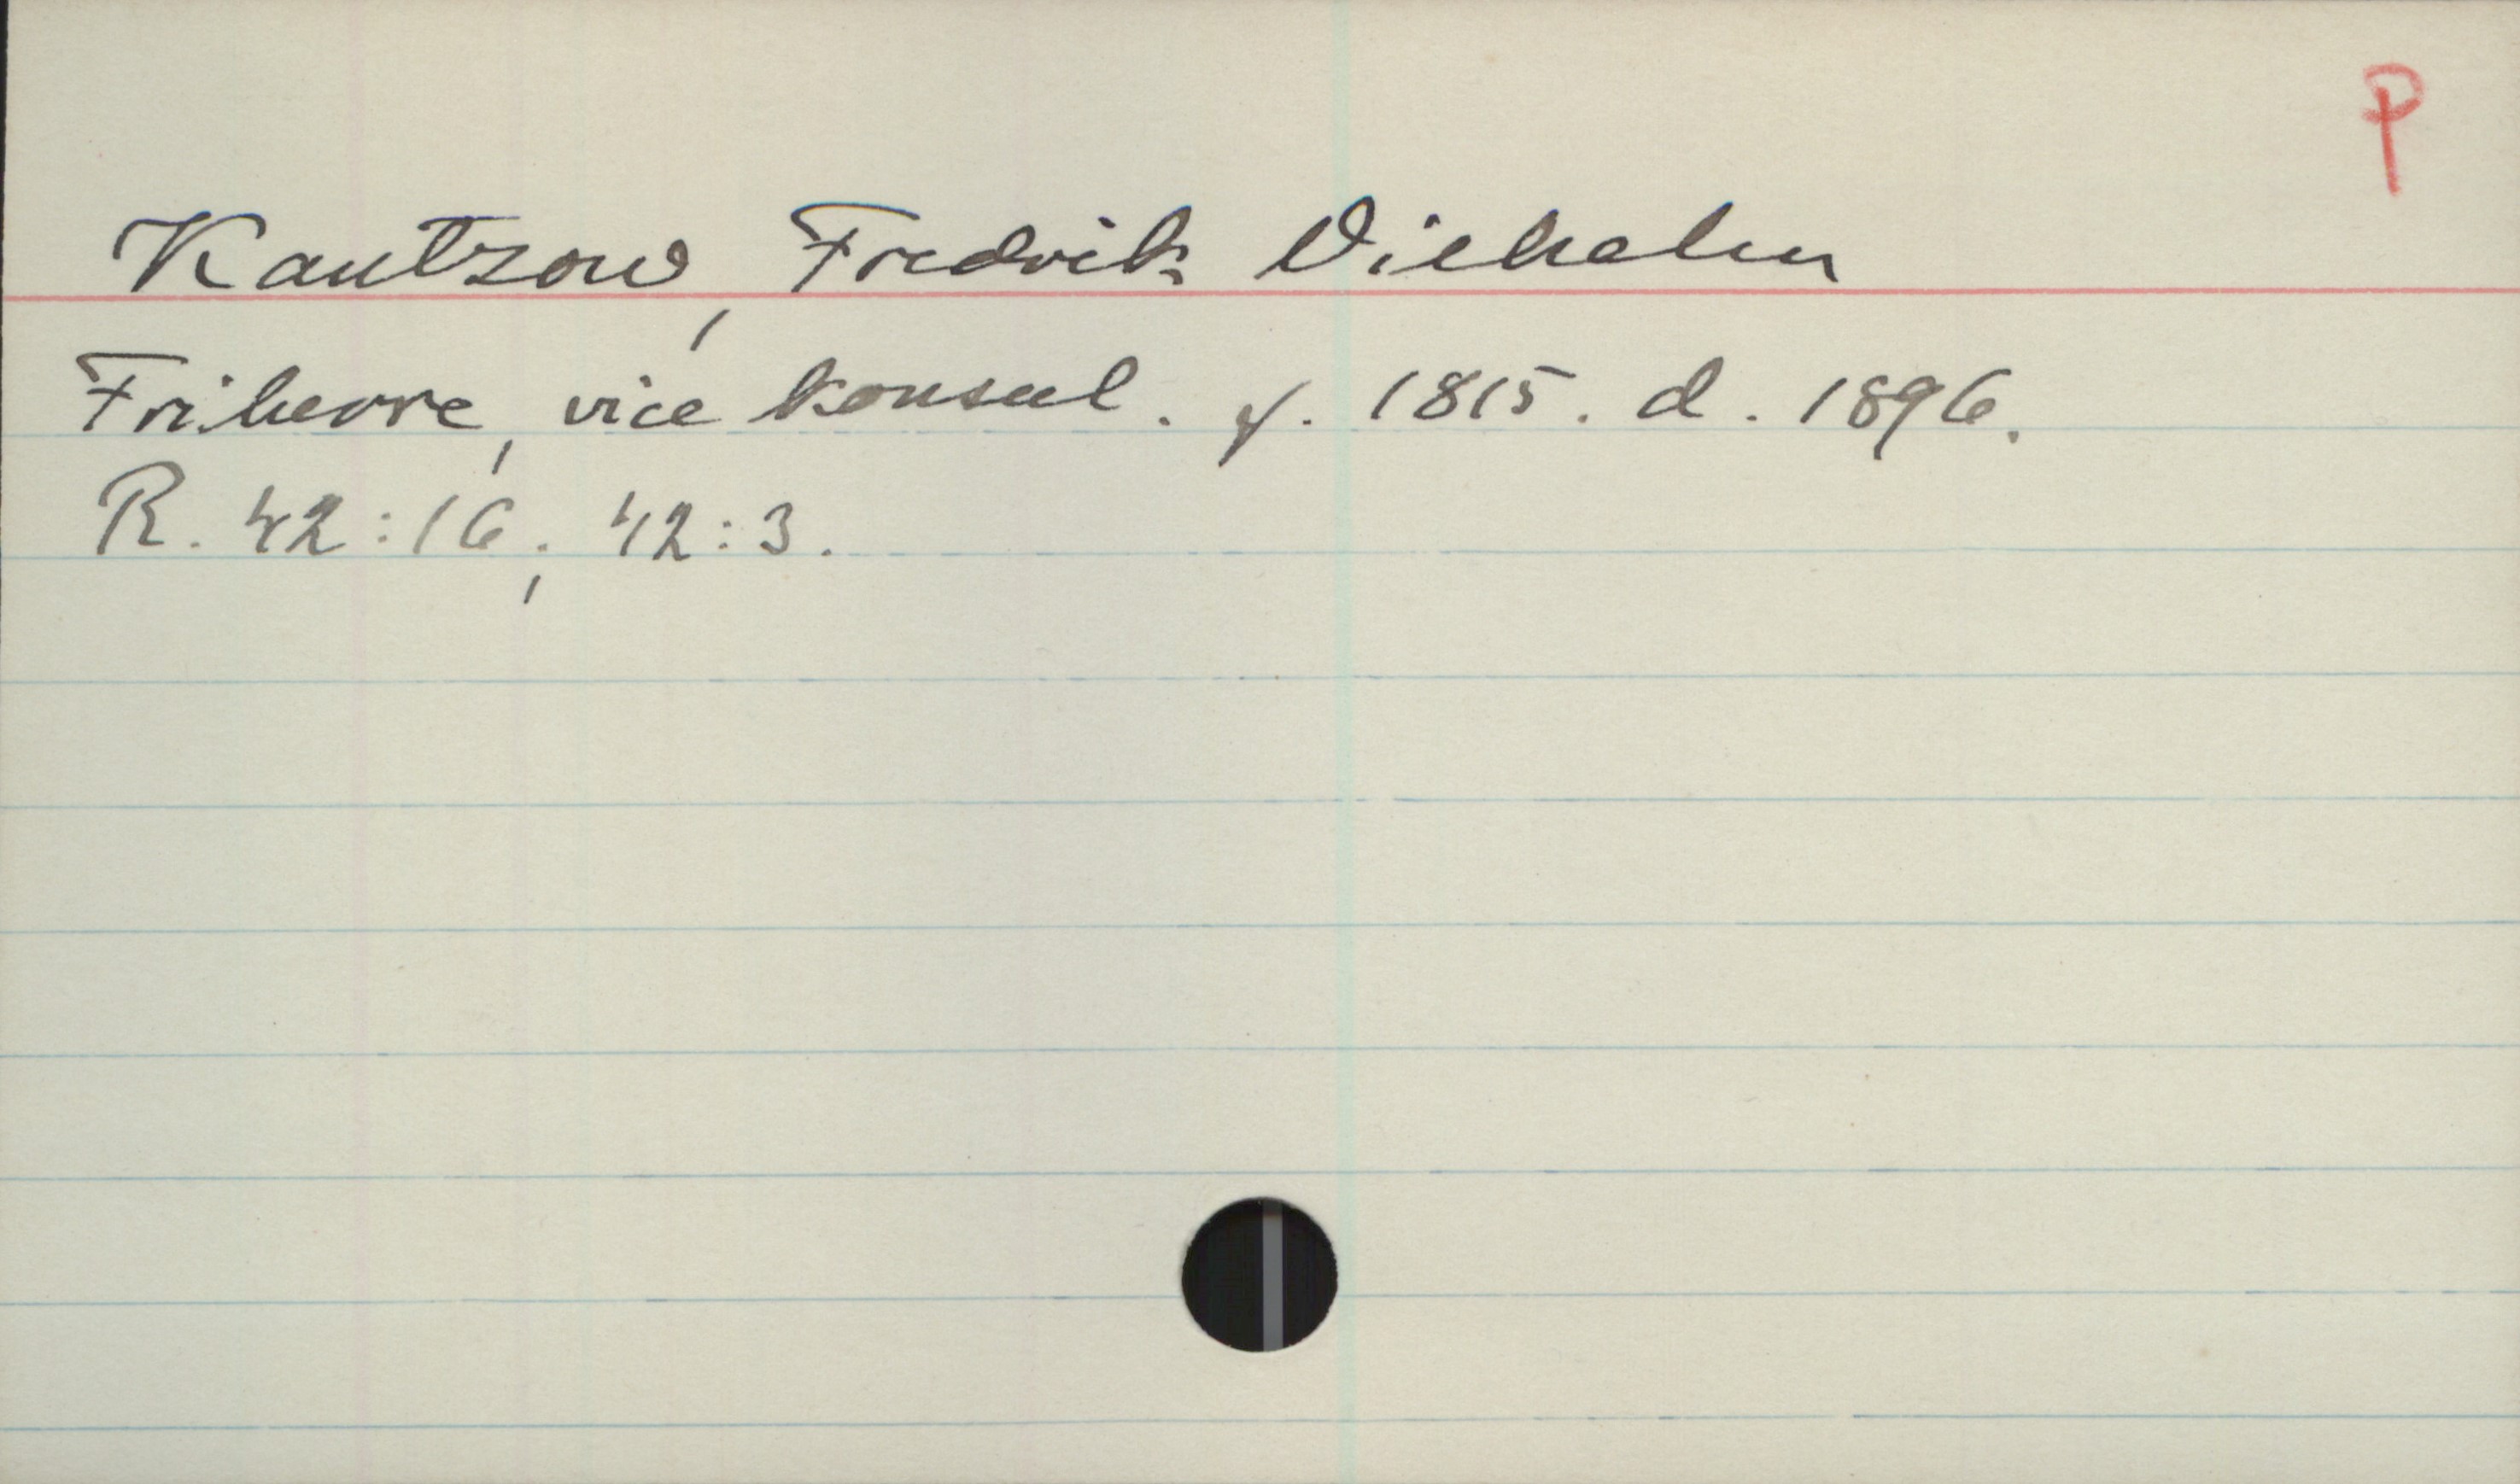 P
Kantzow, Fredrik Vilhelm
Friherre, vice konsul. f. 1815. d. 1896.
R. 42:16; 42:3.